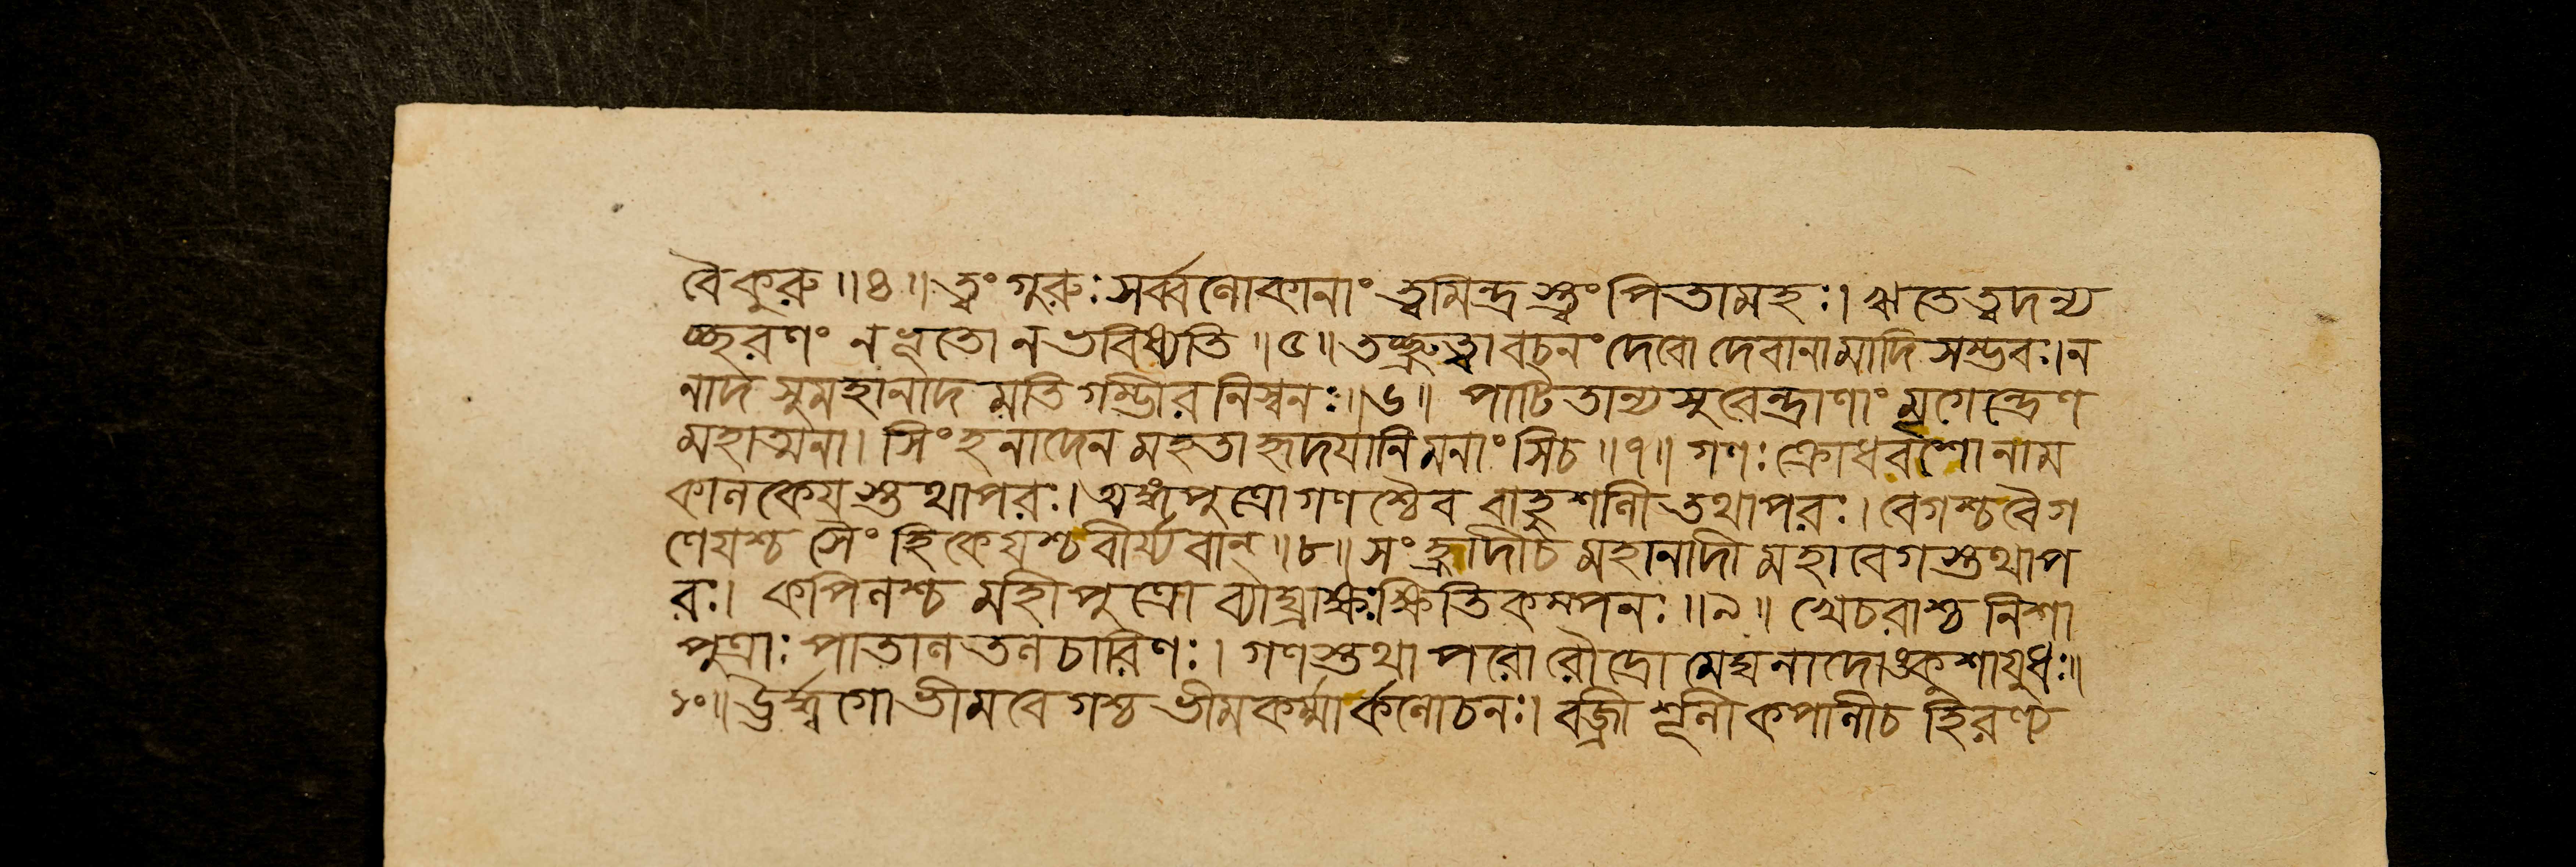 বৈকুরু ॥৪॥ ত্বং গুরুঃ সর্ব্বলোকানাং ত্বমিন্দ্রস্ত্বং পিতামহঃ। ঋতেত্বদন্য
চ্ছরণং নভূতো নভবিষ্যতি ॥৫॥ তচ্ছ্রুত্বা বচনং দেবো দেবানামাদি সম্ভবঃ। ন
নাদ সুমহানাদ মতি গম্ভীর নিস্বনঃ॥৬॥ পাটিতান্যসুরেন্দ্রাণাং মৃগেন্দ্রেণ
মহাত্মনা। সিংহনাদেন মহতা হৃদয়ানি মনাংসিচ ॥৭॥ গণঃ ক্রোধবশো নাম
কালকেয়স্তথাপরঃ। গণশ্চৈব বাহুশালী তথাপরঃ। বেগশ্চবৈগ
লেয়শ্চ সৈংহিকেয়শ্চবীর্য্যবান্ ॥৮॥ সংহ্রাদীচ মহানাদী মহাবেগস্তথাপ
রঃ। কপিলশ্চ মহীপুত্রো ব্যাঘ্রাক্ষঃ ক্ষিতিকম্পনঃ ॥৯॥ খেচরাশ্চ নিশা
পুত্রাঃ পাতালতলচারিণঃ। গণস্তথা পরো রৌদ্রো মেঘনাদোঙ্কুশায়ুধঃ॥
১০॥ ঊর্দ্ধ্বগো ভীমবেগশ্চ ভীমকর্ম্মার্কলোচনঃ। বজ্রী শূলী কপালীচ হিরণ্য